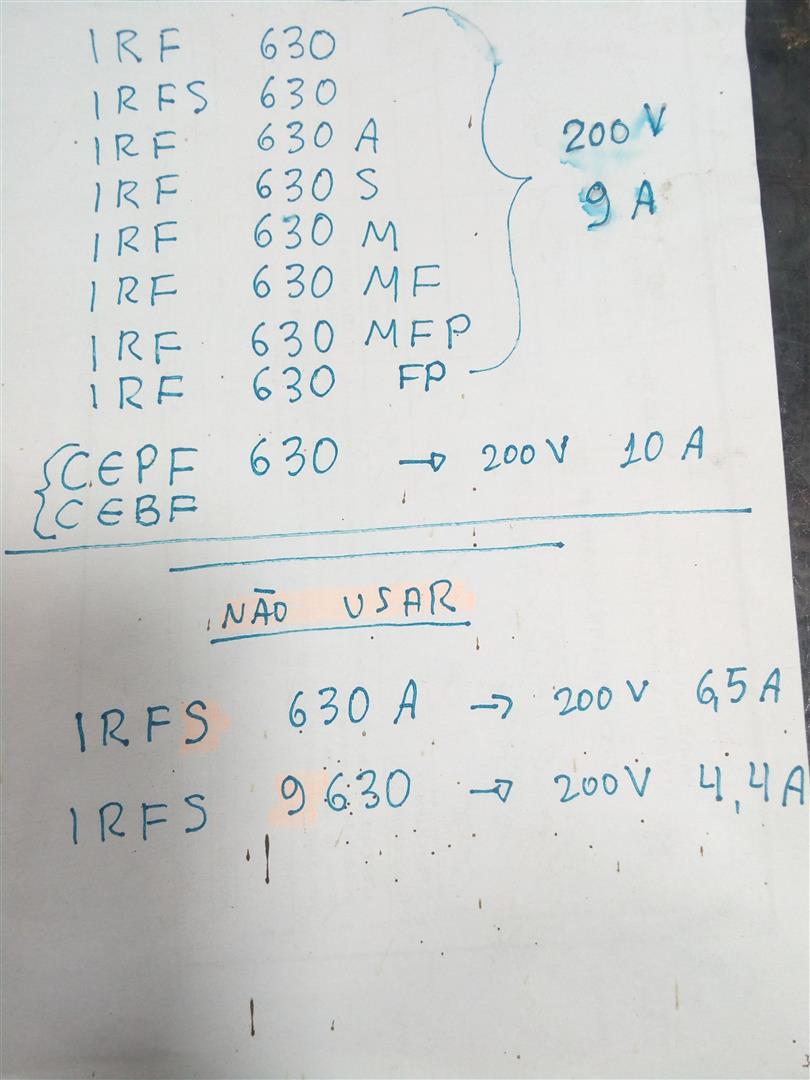 IRF 630
IRFS 630
IRF 630 A
IRF 630 S
IRF 630 M
IRF 630 MF
IRF 630 MFP
IRF 630 FP
200 V
9 A
CEPF 630 → 200 V 10 A
CEBF
NÃO USAR
IRFS 630 A → 200 V 6,5 A
IRFS 9630 → 200 V 4,4 A